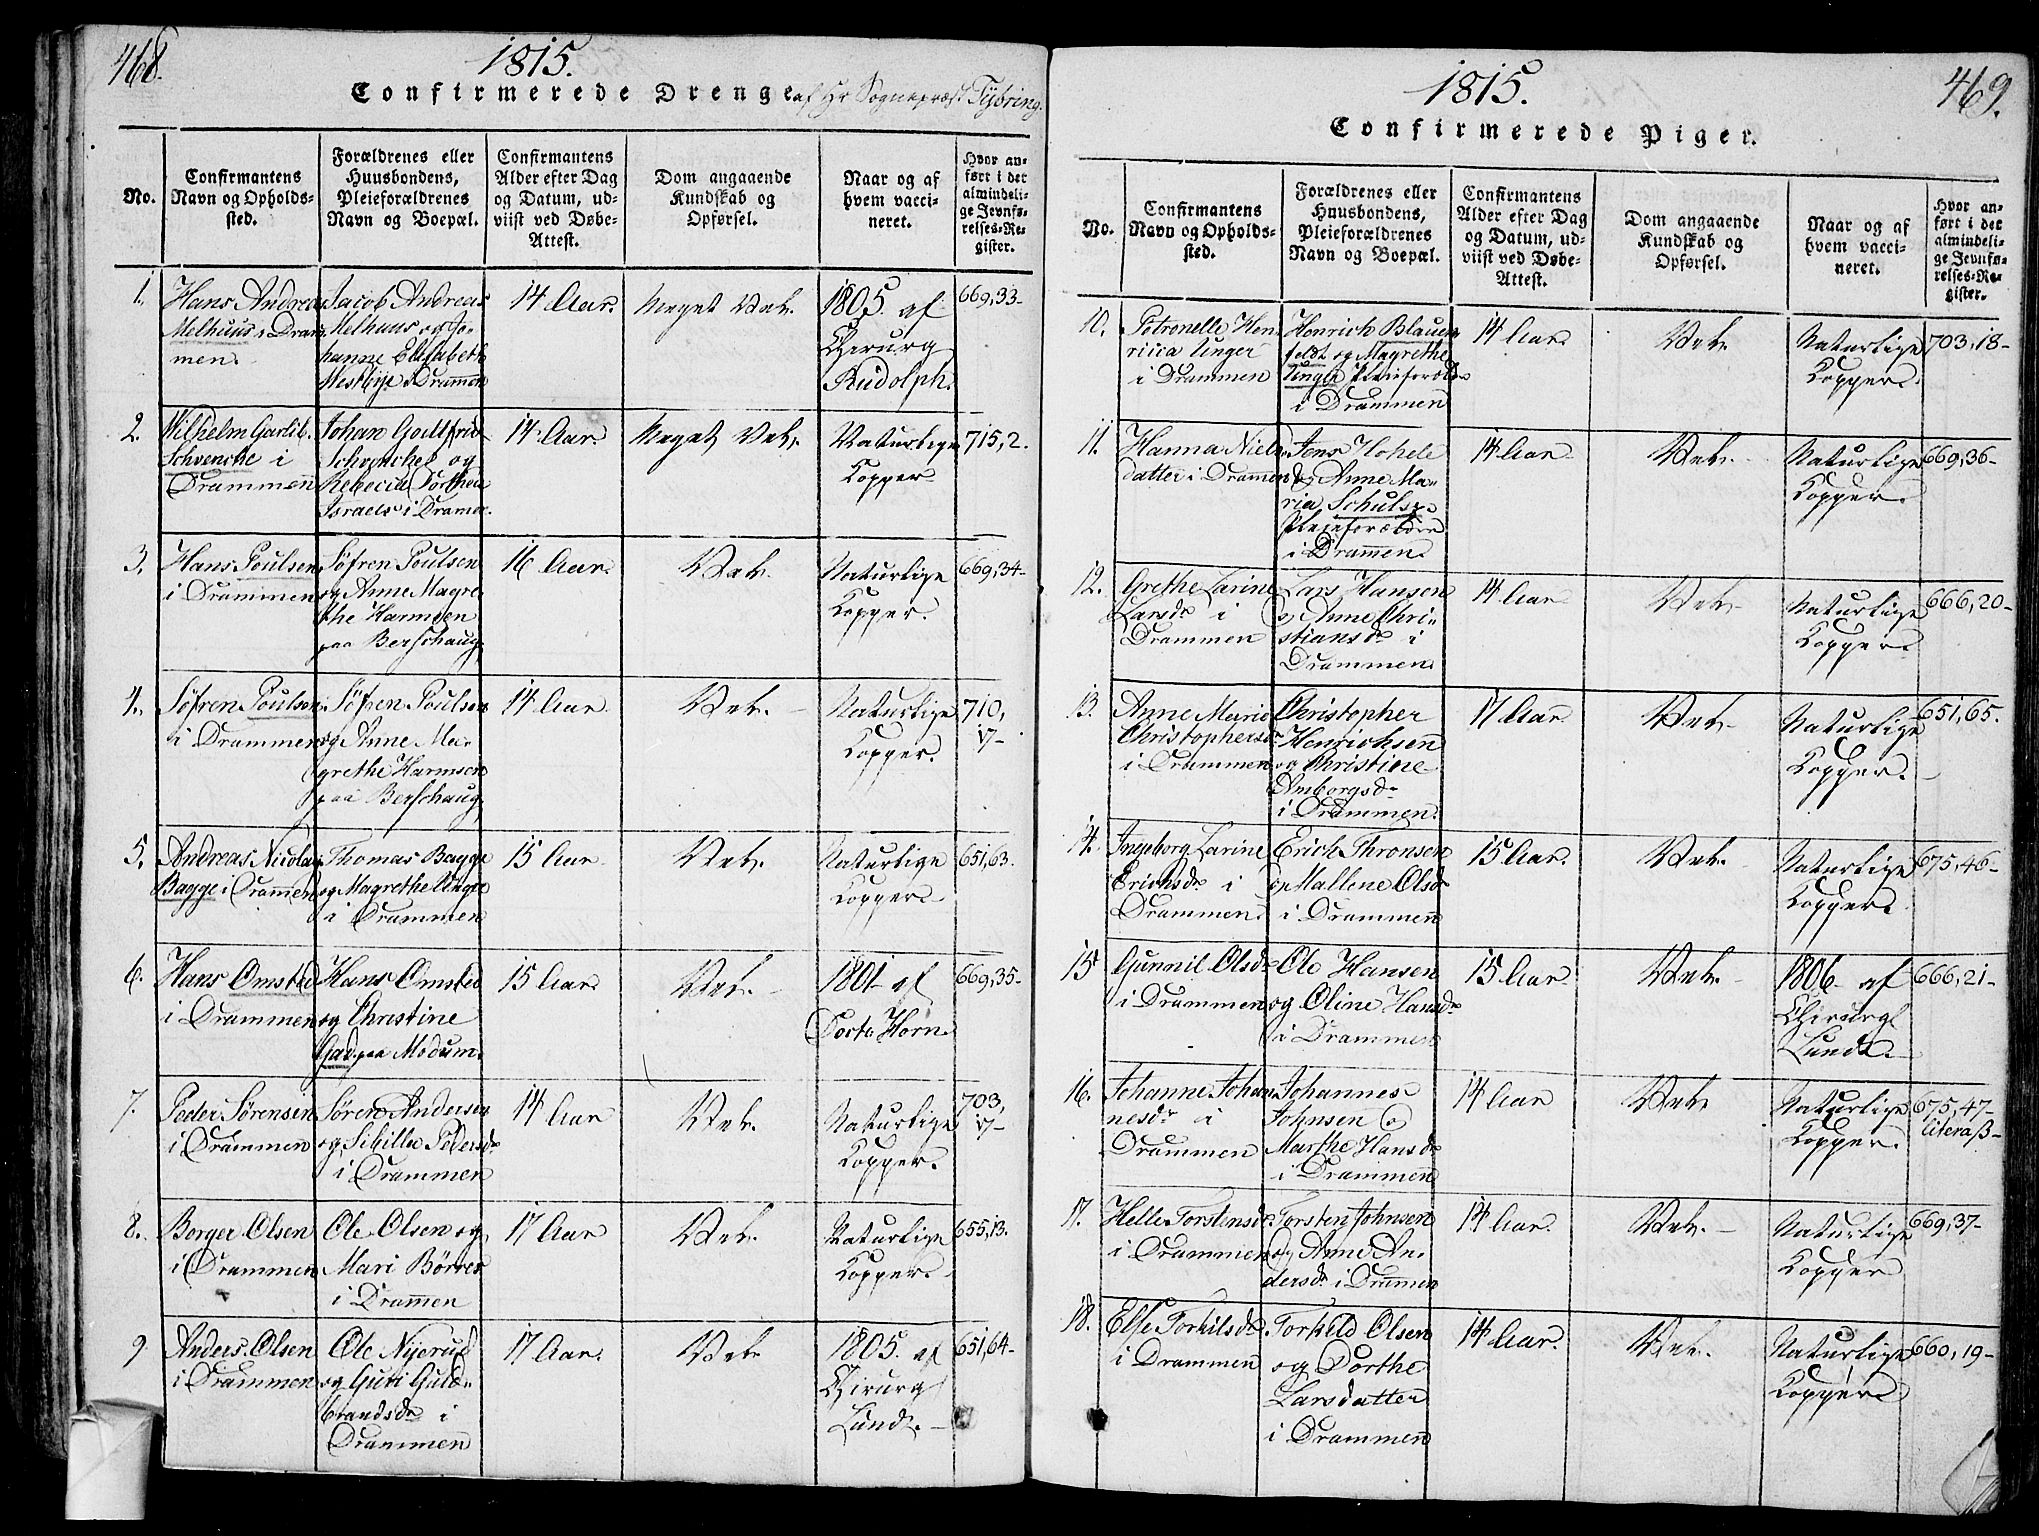 468.
1815.
Confirmerede Drenge af Hr Sognepræst Tybring.
No.
Confirmantens
Navn og Opholds-
sted.
Forældrenes eller
Huusbondens,
Pleieforældrenes
Navn og Boepæl.
Confirmantens
Alder efter Dag
og Datum, ud-
viist ved Døbe-
Attest.
Dom angaaende
Kundskab og
Opførsel.
Naar og af
hvem vacci-
neret.
Hvor an-
ført i det
almindeli-
ge Jevnfø-
relses-Re-
gister.
1.
Hans Andreas
Melhuus i Dram-
men.
Jacob Andreas
Melhuus og Jo-
hanne Elisabeth
Westbye i Drammen
14 Aar.
Meget Vel.
1805. af
Chirurg
Rudolph.
669,33-
2.
Wilhelm Garlib.
Schvencke i
Drammen
Johan Gottfried
Schvencke og
Rebecca Dorthea
Israels i Dramen.
14 Aar.
Meget Vel.
Naturlige
Kopper
715,2.
3.
Hans Poulsen
i Drammen
Søfren Poulsen
og Anne Magre-
the Harmsen
paa Berschaug
16 Aar.
Vel.
Naturlige
Kopper.
669,34-
4.
Søfren Poulsen
i Drammen
Søfren Poulsen
og Anne Ma-
grethe Harmsen
paa Berschaug
14 Aar
Vel.
Naturlige
Kopper.
710,
17-
5.
Andreas Nicolay
Bagge i Dramen
Thomas Bagge
og Magrethe Unger
i Drammen
15 Aar
Vel.
Naturlige
Kopper
651,63.
6.
Hans Omsted
i Drammen
Hans Omsted
og Christine
Gad paa Modum.
15 Aar
Vel.
1801 af
Doctr Horn.
669,35-
7.
Peder Sørensen
i Drammen
Søren Andersen
og Sibille Pedersdr
i Drammen
14 Aar
Vel.
Naturlige
Kopper.
703,
17-
8.
Borger Olsen
i Drammen
Ole Olsen og
Mari Börres
i Dramen
17 Aar
Vel.
Naturlige
Kopper.
655,13.
9
Anders Olsen
i Drammen
Ole Nyerud
og Guri Guld-
brandsdr i
Drammen
17 Aar.
Vel
1805. af
Chirurg
Lund.
651,64-
1815.
469.
Confirmerede Piger.
No.
Confirmantens
Navn og Opholds-
sted.
Forældrenes eller
Huusbondens,
Pleieforældrenes
Navn og Boepæl.
Confirmantens
Alder efter Dag
og Datum, ud-
viist ved Døbe-
Attest.
Dom angaaende
Kundskab og
Opførsel.
Naar og af
hvem vacci-
neret.
Hvor an-
ført i det
almindeli-
ge Jevnfø-
relses-Re-
gister.
10.
Petronelle Hen-
ricca Unger
i Drammen
Henrich Blauen-
feldt og Magrethe
Unger Pleieforæld-
i Drammen
14 Aar.
Vel
Naturlige
Kopper.
703,18-
11.
Hanna Niels-
datter i Dramen
Jens Hohele
og Anne Ma-
ria Schulse
Pleieforældre
i Dramen.
14 Aar.
Vel.
Naturlige
Kopper.
669,36-
12.
Grethe Larine
Larsdr i
Drammen
Lars Hansen
og Anne Chri-
stiansdr i
Drammen.
14 Aar
Vel
Naturlige
Kopper.
666,20-
13.
Anne Marie
Christophersdr
i Drammen
Christopher
Henrichsen
og Christine
Amborgsdr
i Drammen.
17 Aar.
Vel.
Naturlige
Kopper.
651,65.
14.
Ingeborg Larine
Erichsdr i
Drammen
Erich Thronsen
og Mallene Olsdr
i Drammen
15 Aar.
Vel.
Naturlige
Kopper.
675,46-
15
Gunnil Olsdr
i Drammen
Ole Hansen
og Oline Hansdr
i Drammen
15 Aar
Vel.
1806. af
Chirurg
Lund.
666,21-
16.
Johanne Johan-
nesdr i
Drammen
Johannes
Johnsen og
Marthe Hansdr
i Drammen
14 Aar
Vel
Naturlige
Kopper.
675,47-
litera ß-
17.
Helle Torstensdr
i Drammen
Torsten Johnsen
og Anne An-
dersdr i Dramen
14 Aar.
Vel.
Naturlige
Kopper
669,37-
18.
Else Torkilsdr
i Drammen
Torkeld Olsen
og Dorthe
Larsdatter
i Drammen
14 Aar.
Vel.
Naturlige
Kopper
660,19-